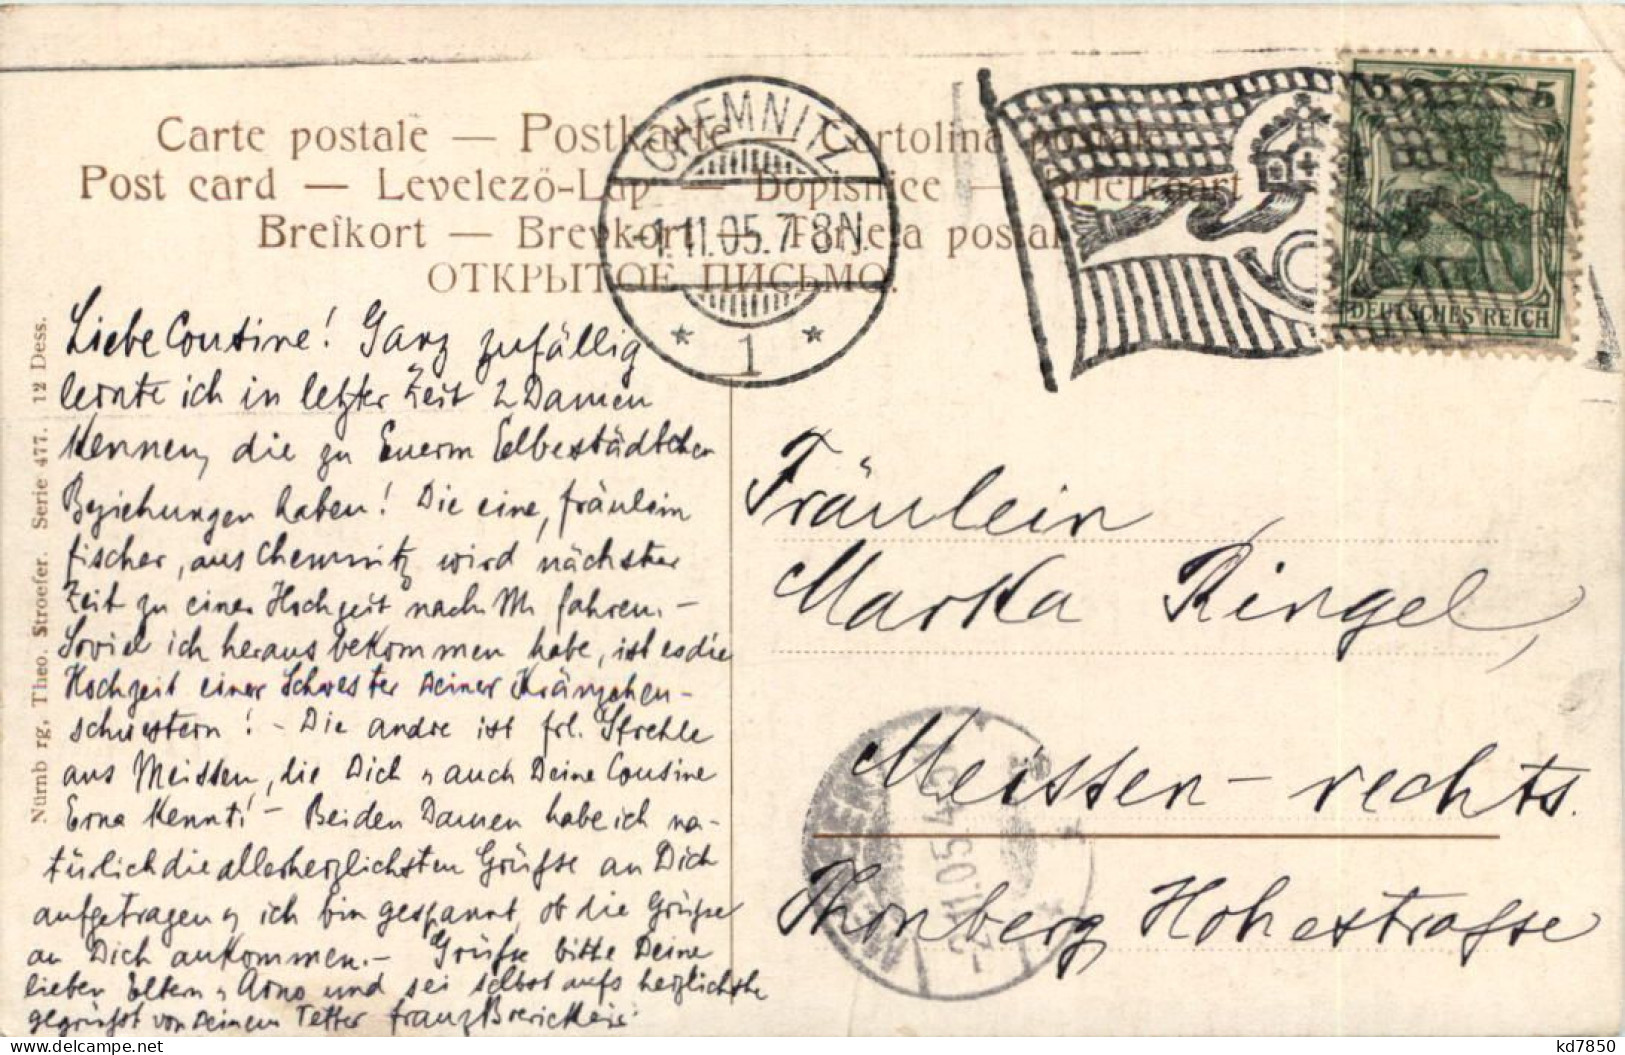 Carte postale — Postkarte — Cartolina postale
Post card — Levelező-Lap — Dopisnice — Briefkaart
Brefkort — Brevkort — Tarjeta postal
ОТКРЫТОЕ ПИСЬМО.
CHEMNITZ
-1.11.05.7-8N.
* 1 *
5 5
DEUTSCHES REICH
Nürnb rg, Theo. Stroefer. Serie 477. 12 Dess.
Liebe Cousine! Ganz zufällig
lernte ich in letzter Zeit 2 Damen
kennen, die zu Euerm Elbestädtchen
Beziehungen haben! Die eine, Fräulein
Fischer, aus Chemnitz wird nächster
Zeit zu einer Hochzeit nach M. fahren. –
Soviel ich heraus bekommen habe, ist es die
Hochzeit einer Schwester Deiner Kränzchen-
schwestern! – Die andre ist Frl. Strehle
aus Meissen, die Dich u auch Deine Cousine
Erna kennt! – Beiden Damen habe ich na-
türlich die allerherzlichsten Grüsse an Dich
aufgetragen u ich bin gespannt, ob die Grüsse
an Dich ankommen. – Grüsse bitte Deine
lieben Eltern u Arno und sei selbst aufs herzlichste
gegrüsst von Deinem Vetter Franz
Fräulein
Marka Ringel,
Meissen – rechts.
Thonberg, Hohestrasse
MEISSEN
-2.11.05.